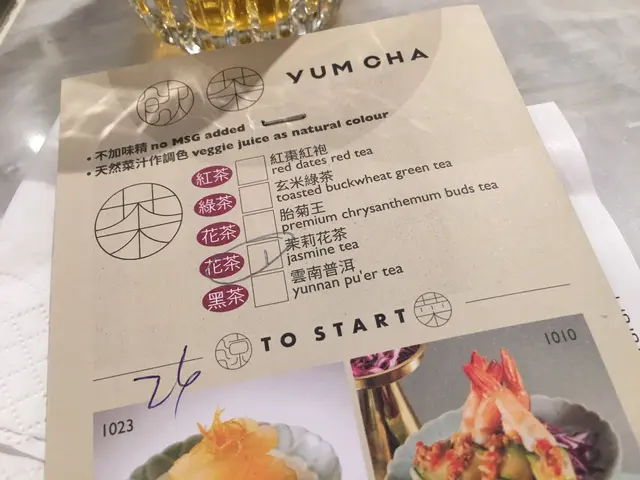 飲 茶 YUM CHA
• 不加味精 no MSG added
• 天然菜汁作調色 veggie juice as natural colour
茶
紅茶 紅棗紅袍
red dates red tea
綠茶 玄米綠茶
toasted buckwheat green tea
花茶 胎菊王
premium chrysanthemum buds tea
花茶 1 茉莉花茶
jasmine tea
黑茶 雲南普洱
yunnan pu'er tea
TO START
26
1023
1010